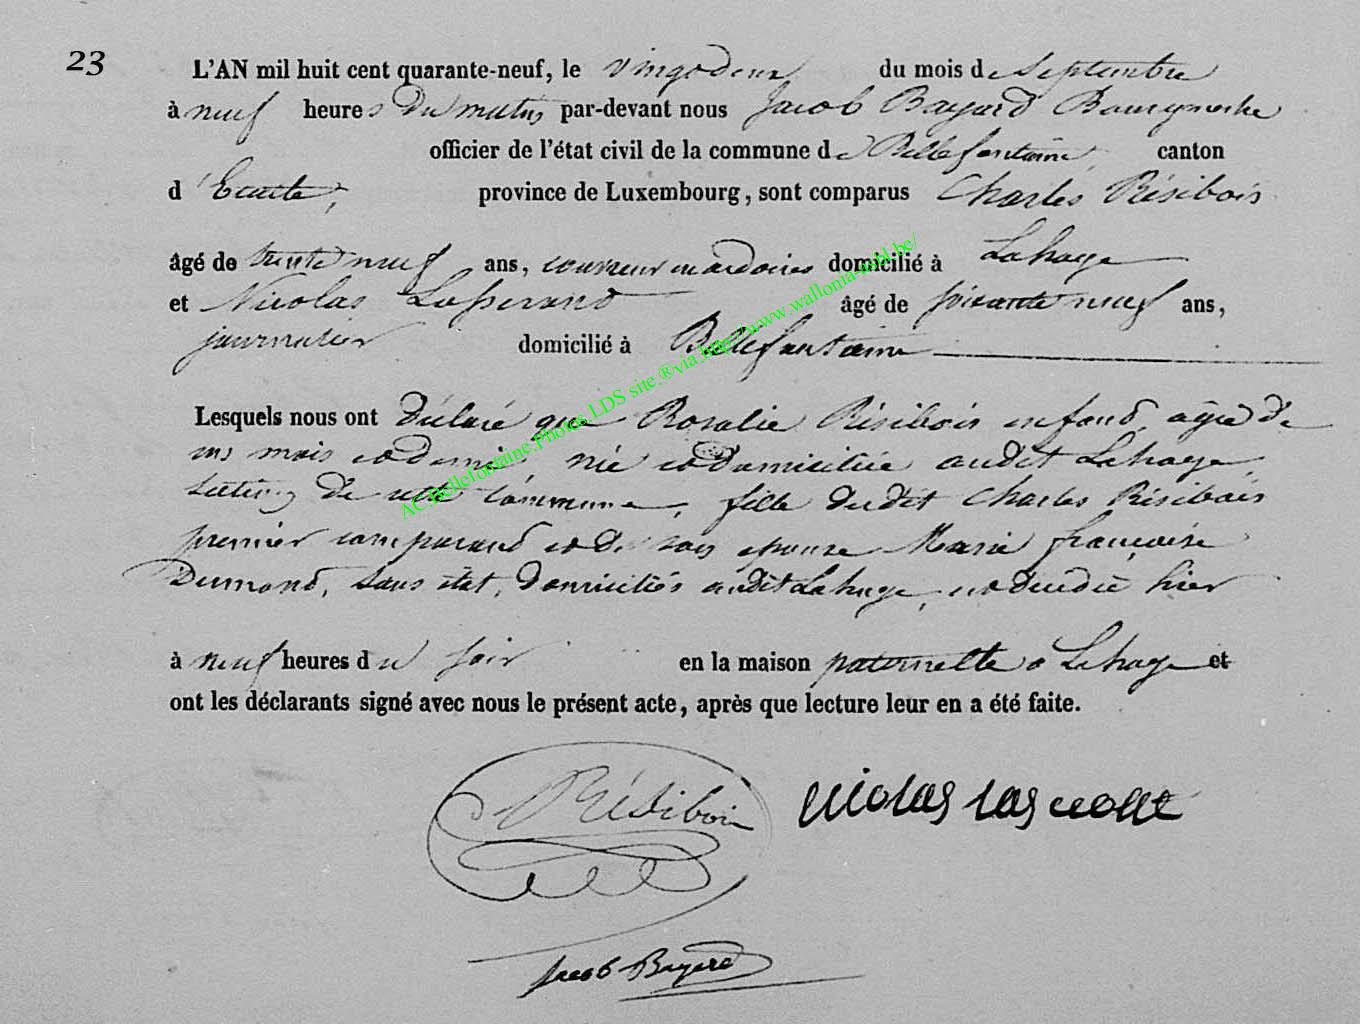 23
L'AN mil huit cent quarante-neuf, le vingt deux du mois de Septembre
à neuf heures du matin par-devant nous Jacob Bayard Bourgmestre
officier de l'état civil de la commune de Bellefontaine canton
d'Etalle, province de Luxembourg, sont comparus Charles Résibois
âgé de trente neuf ans, couvreur en ardoises domicilié à Lahage
et Nicolas âgé de soixante neuf ans,
journalier domicilié à Bellefontaine
Lesquels nous ont déclaré que Rosalie Résibois enfand, agée de
mois et demi née et domiciliée audit Lahage,
section de cette Commune, fille dudit Charles Résibois
premier comparand et de son epouse Marie françoise
Dumond, sans état, domiciliés audit Lahage, est décédée hier
à neuf heures du soir en la maison paternelle a Lahage et
ont les déclarants signé avec nous le présent acte, après que lecture leur en a été faite.
AC.Bellefontaine.Photos.LDS site.®via.http://www.wallonia-asbl.be/
Résibois nicolas
Jacob Bayard